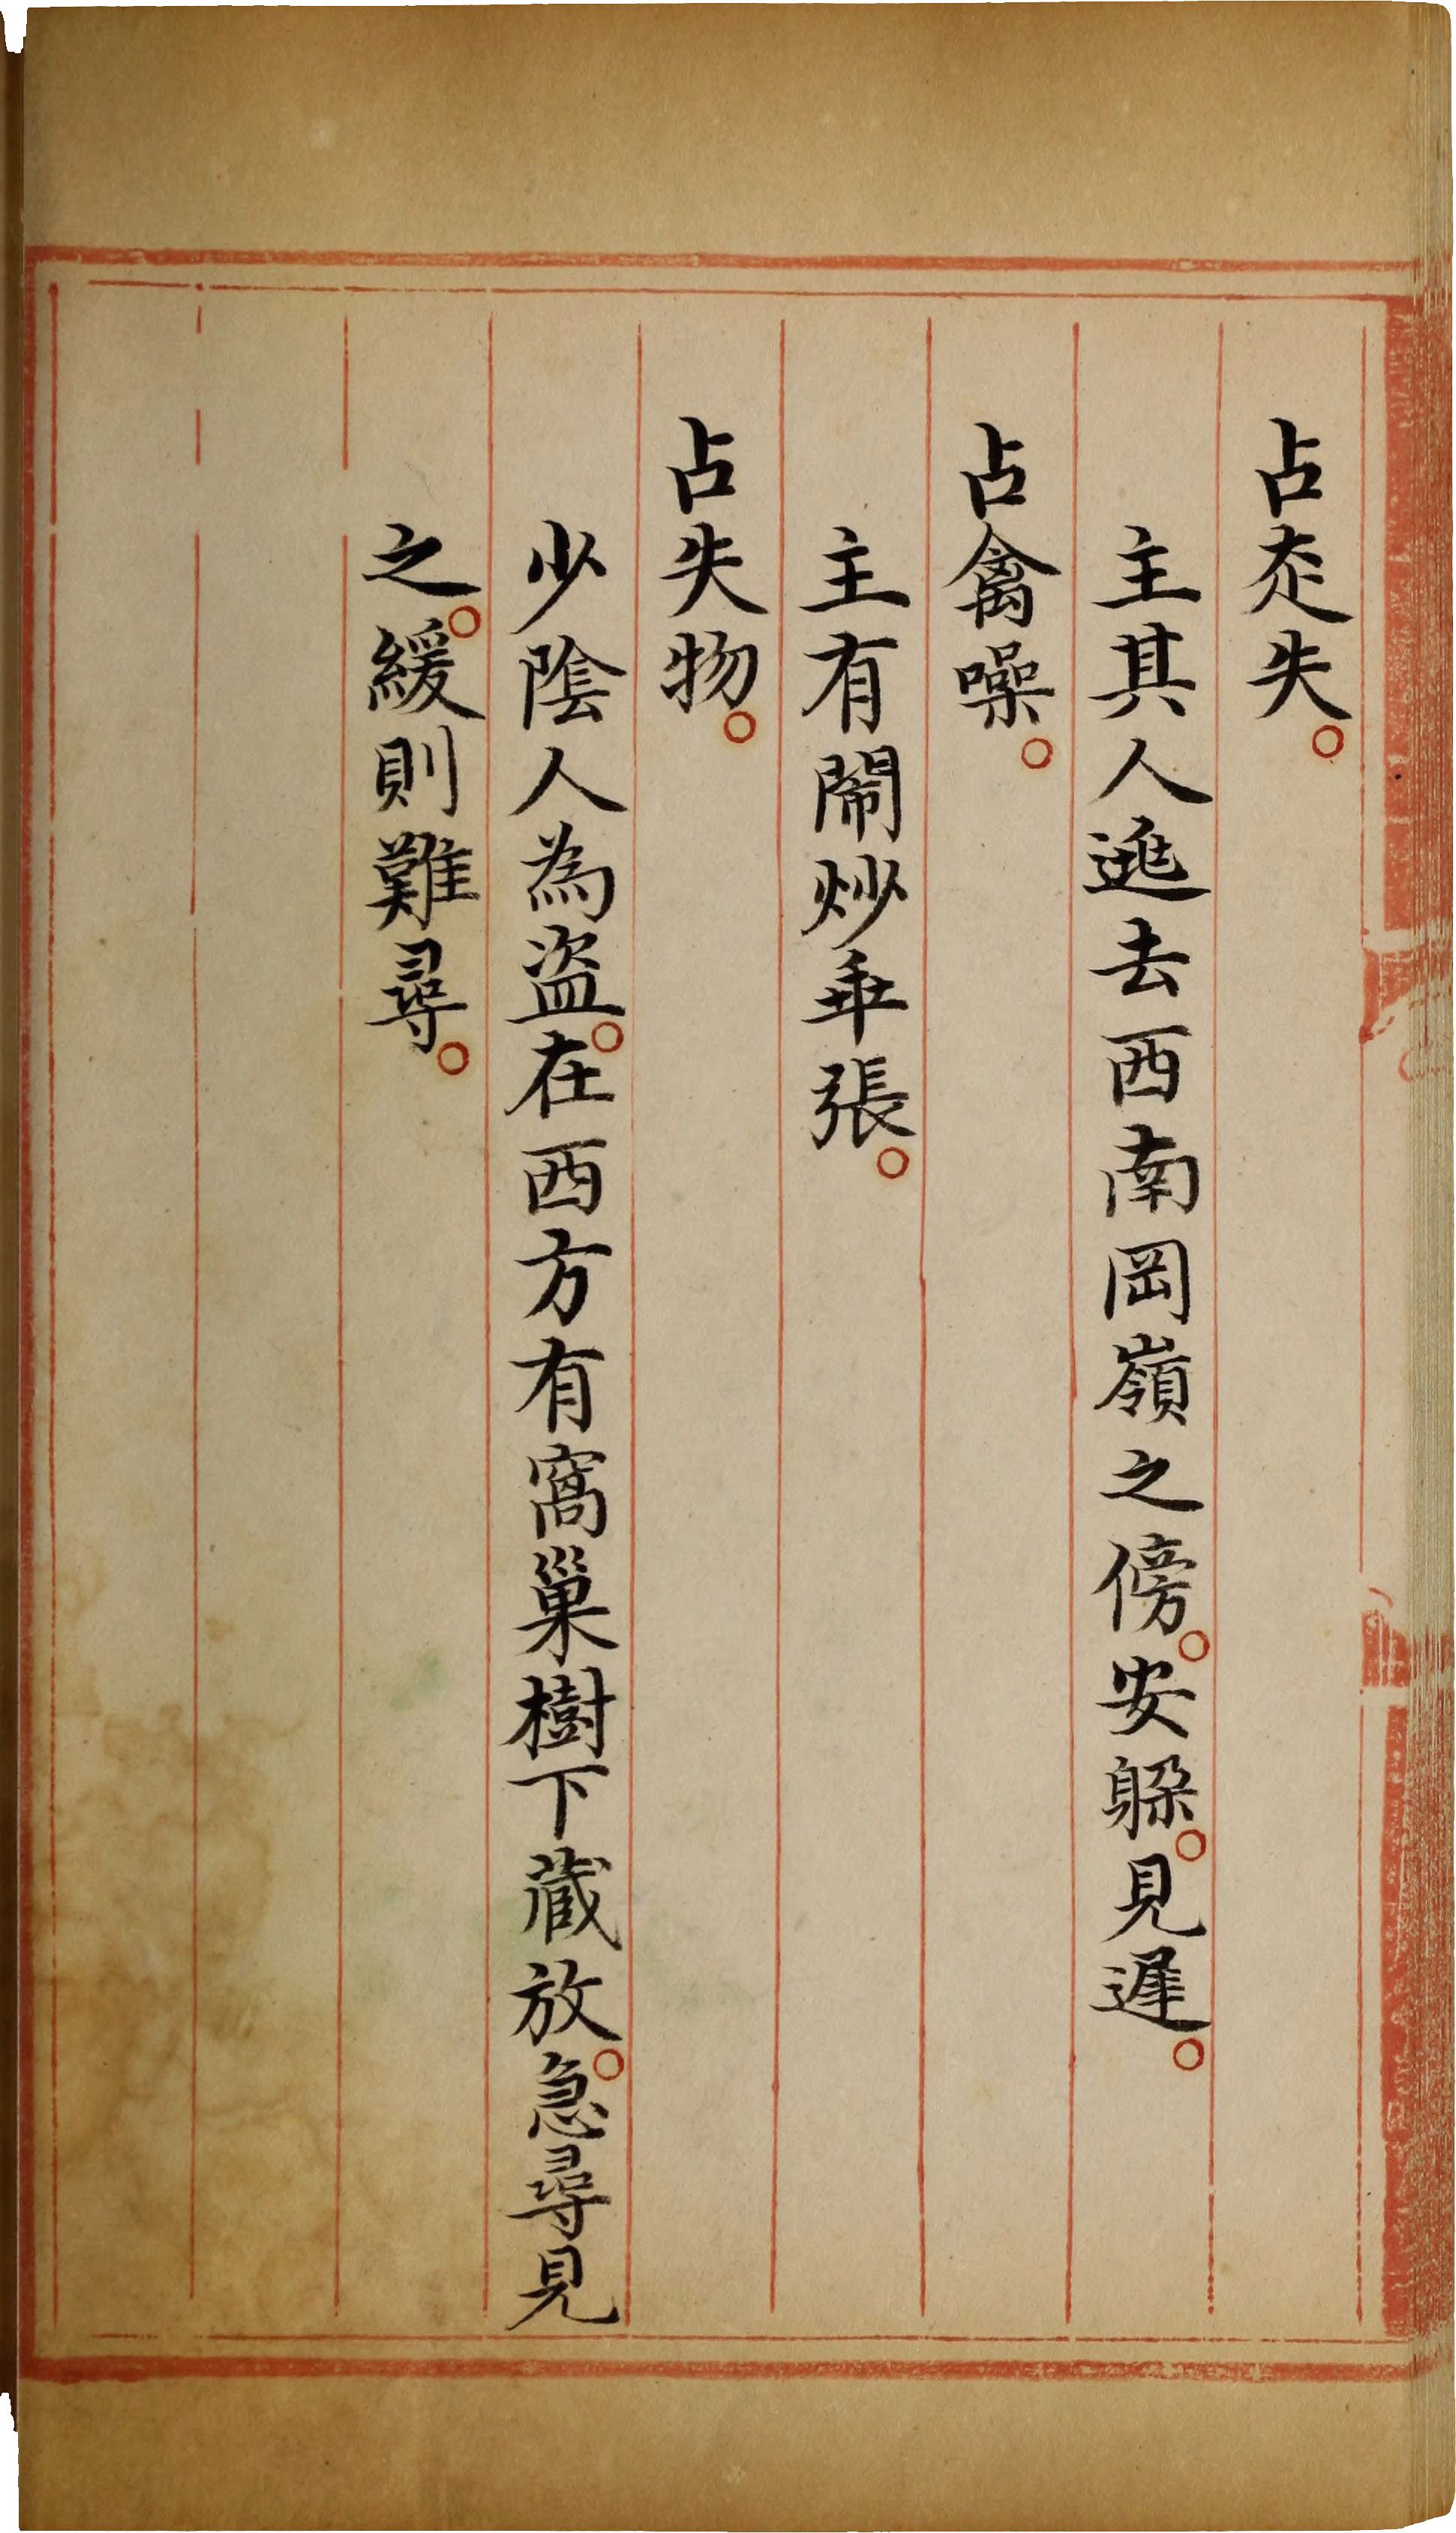 占走失。
主其人逃去西南岡嶺之傍。安躲。見遲。
占禽噪。
主有閙炒乖張。
占失物。
少陰人為盗。在西方有窩巢樹下藏放。急尋見
之。緩則難尋。